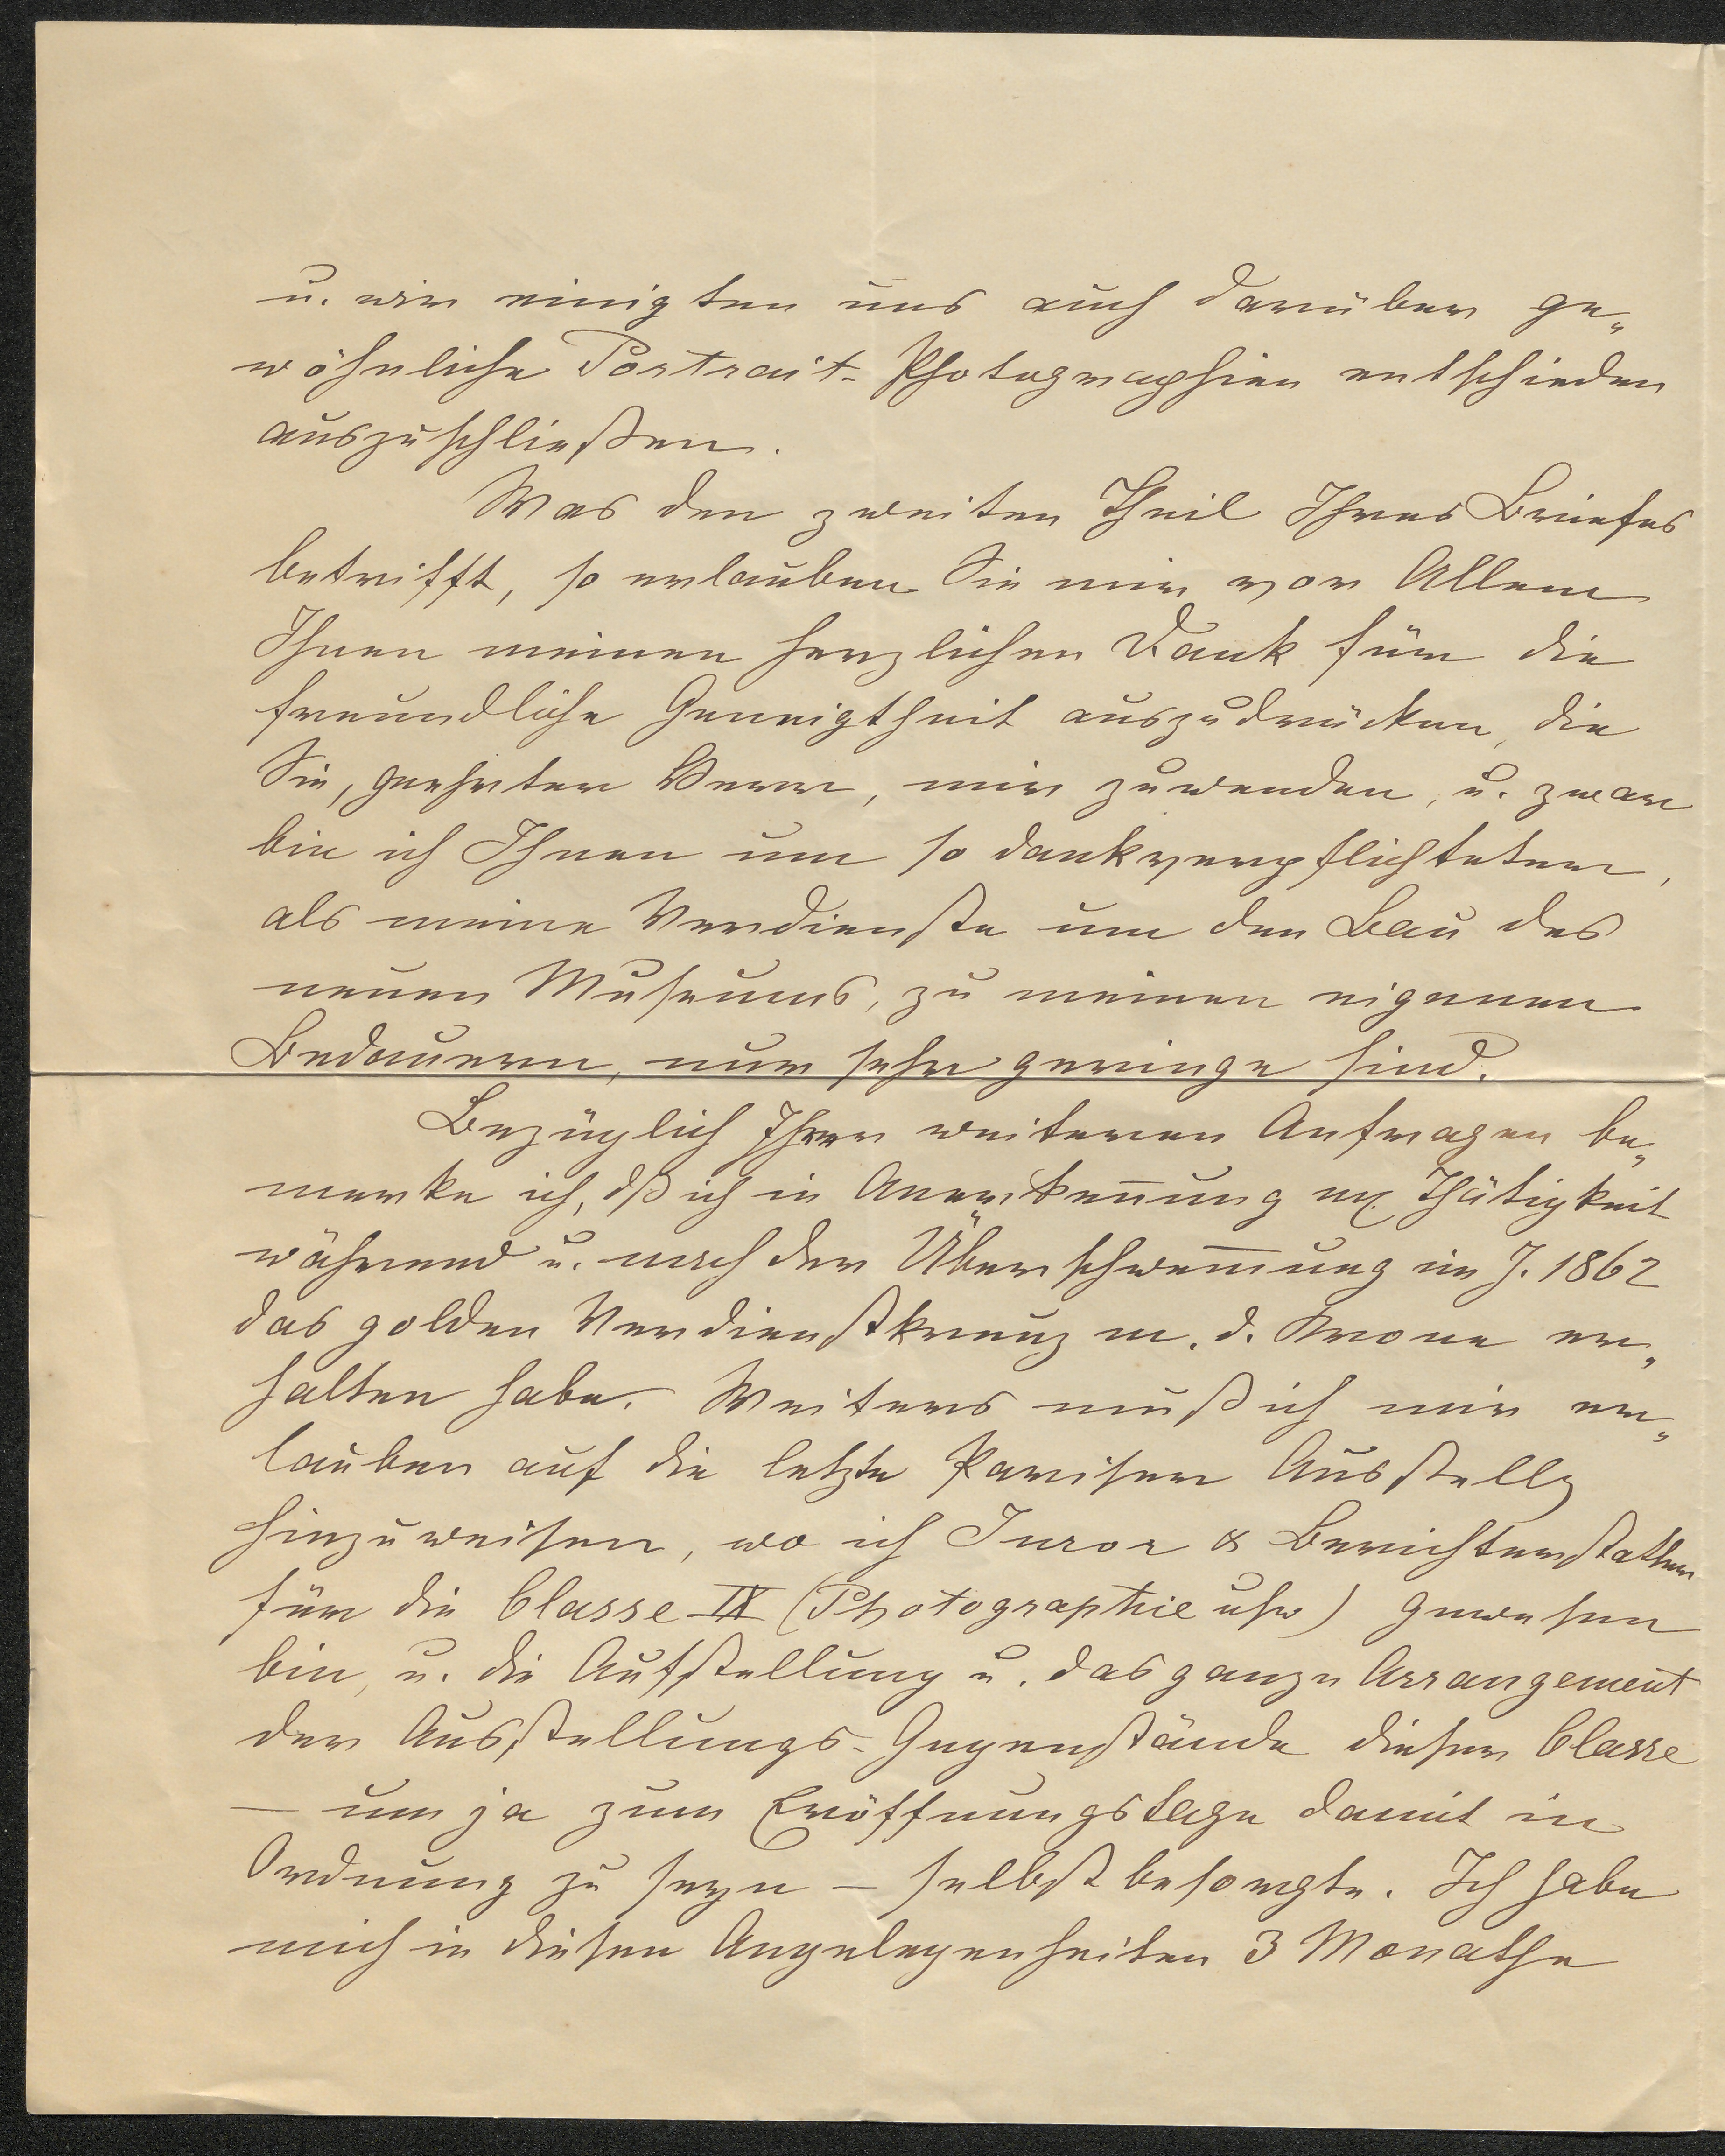 u. wir einigten uns auch darüber ge„
wöhnliche Portrait-Photographien entschieden
auszuschließen.
Was den zweiten Theil Ihres Briefes
betrifft, so erlauben Sie mir vor Allem
Ihnen meinen herzlichen Dank für die
freundliche Geneigtheit auszudrücken, die
Sie, geehrter Herr, mir zuwenden, u. zwar
bin ich Ihnen um so dankverpflichteter,
als meine Verdienste um den Bau des
neuen Museums, zu meinen eigenen
Bedauern, nur sehr geringe sind.
Bezüglich Ihrer weiteren Anfragen be„
merke ich, dß ich in Anerkennung mr. Thätigkeit
während u. nach der Überschwem̅ung im J. 1862
das golden Verdienstkreuz m. d. Krone er„
halten habe. Weiters muß ich mir er„
lauben auf die letzte Pariser Ausstellg
hinzuweisen, wo ich Juror & Berichterstatter
für die Classe IX (Photographie usw) gewesen
bin, u. die Aufstellung u. das ganze Arrangement
der Ausstellungs-Gegenstände dieser Classe
— um ja zum Eröffnungstage damit in
Ordnung zu seyn — selbst besorgte. Ich habe
mich in diesen Angelegenheiten 3 Monathe